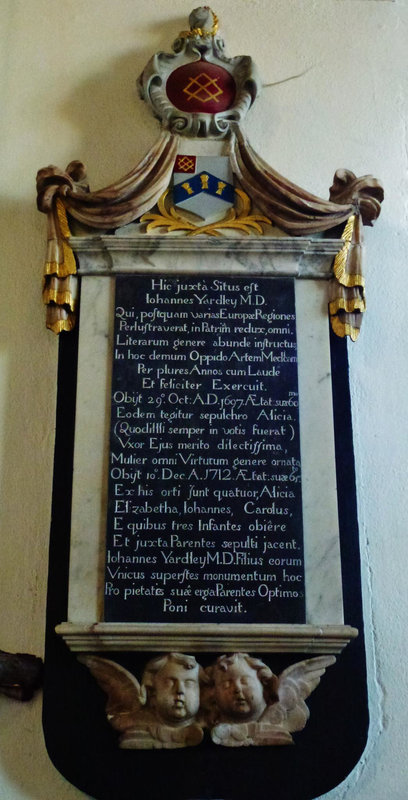 Hic juxtà Situs est
Iohannes Yardley M.D.
Qui, postquam varias Europæ Regiones
Perlustraverat, in Patriam redux, omni
Literarum genere abunde instructus
In hoc demum Oppido Artem Medicam
Per plures Annos cum Laude
Et feliciter Exercuit.
Obijt 29º. Oct: A.D. 1697. Ætat: suæ 60mo
Eodem tegitur sepulchro Alicia
(Quod illi semper in votis fuerat)
Vxor Ejus merito dilectissima,
Mulier omni Virtutum genere ornata
Obijt 10º. Dec. A. 1712. Ætat: suæ 65.
Ex his orti sunt quatuor, Alicia
Elizabetha, Iohannes, Carolus,
E quibus tres Infantes obiêre
Et juxta Parentes sepulti jacent.
Iohannes Yardley M.D. Filius eorum
Vnicus superstes monumentum hoc
Pro pietatis suæ erga Parentes Optimos
Poni curavit.